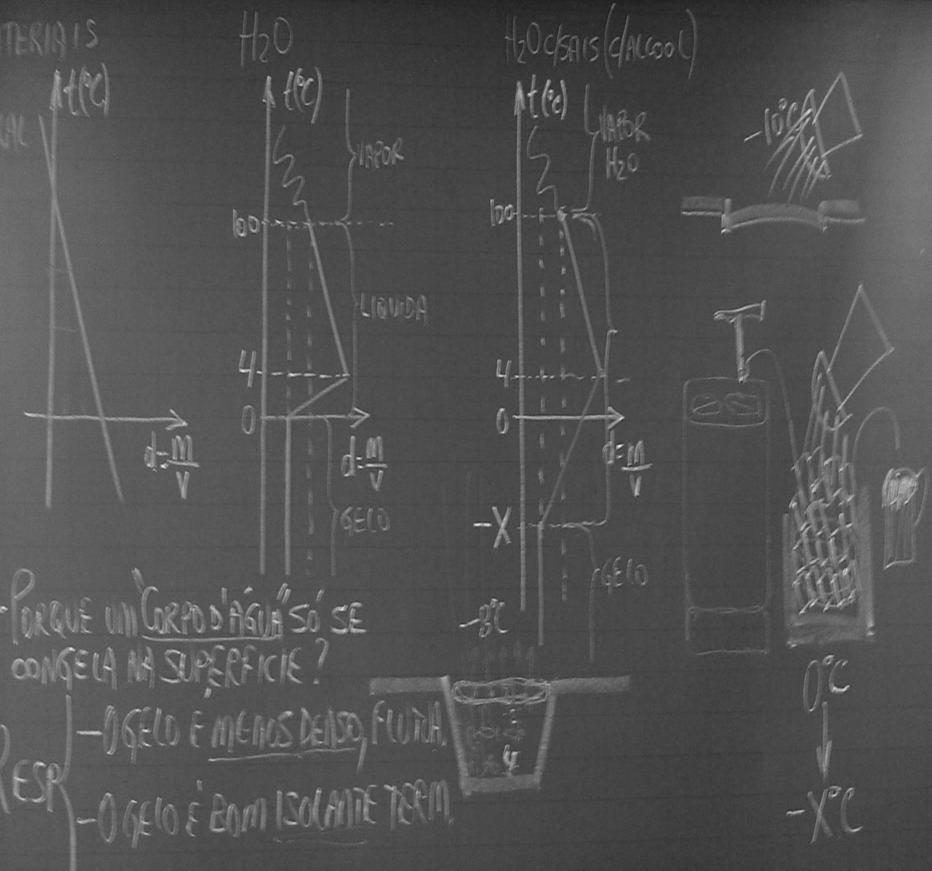 TERIAIS
t(°C)
d=m/V
H₂O
t(°C)
VAPOR
100
LIQUIDA
4
0
d=m/V
GELO
H₂O C/SAIS (C/ALCOOL)
t(°C)
VAPOR
H₂O
100
4
0
d=m/V
-X
GELO
-10°C
-PORQUE UM "CORPO D'ÁGUA" SÓ SE
CONGELA NA SUPERFICIE?
RESP
-O GELO É MENOS DENSO, FLUTUA.
-O GELO É BOM ISOLANTE TERM.
-8°C
4
0°C
-X°C